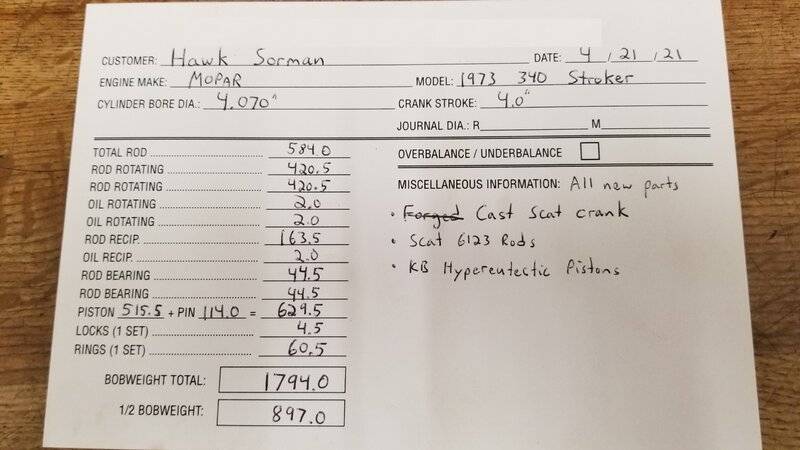 CUSTOMER: Hawk Sorman DATE: 4/21/21
ENGINE MAKE: MOPAR MODEL: 1973 340 Stroker
CYLINDER BORE DIA.: 4.070" CRANK STROKE: 4.0"
JOURNAL DIA.: R M
TOTAL ROD 584.0
ROD ROTATING 420.5
ROD ROTATING 420.5
OIL ROTATING 2.0
OIL ROTATING 2.0
ROD RECIP. 163.5
OIL RECIP. 2.0
ROD BEARING 44.5
ROD BEARING 44.5
PISTON 515.5 + PIN 114.0 = 629.5
LOCKS (1 SET) 4.5
RINGS (1 SET) 60.5
BOBWEIGHT TOTAL: 1794.0
1/2 BOBWEIGHT: 897.0
OVERBALANCE / UNDERBALANCE
MISCELLANEOUS INFORMATION: All new parts
• Forged Cast Scat crank
• Scat 6123 Rods
• KB Hypereutectic Pistons